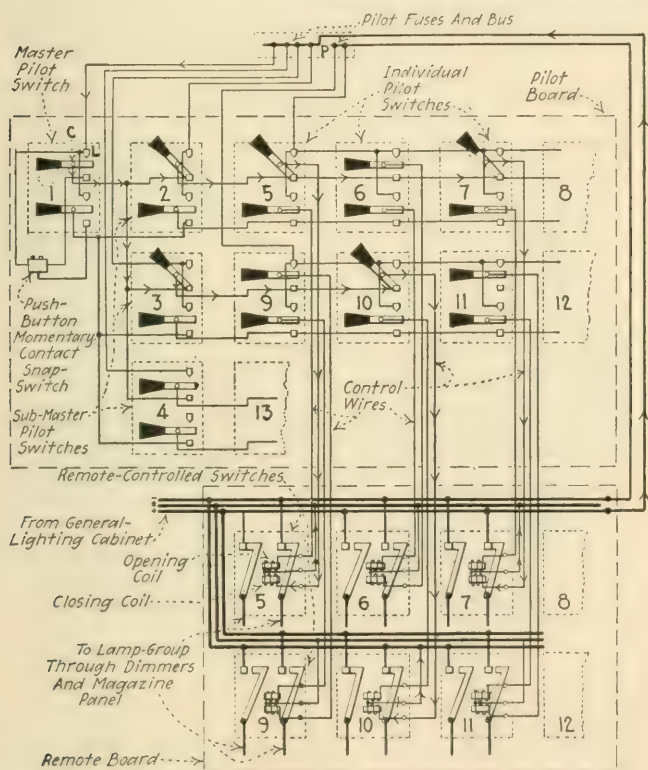 Pilot Fuses And Bus
P
Master
Pilot
Switch
Individual
Pilot
Switches
Pilot
Board
C
L
1
2
5
6
7
8
3
9
10
11
12
4
13
Push-
Button
Momentary-
Contact
Snap-
Switch
Sub-Master
Pilot
Switches
Control
Wires
Remote-Controlled Switches
From General-
Lighting Cabinet
Opening
Coil
Closing Coil
5
6
7
8
To Lamp-Group
Through Dimmers
And Magazine
Panel
9
10
11
12
Remote Board